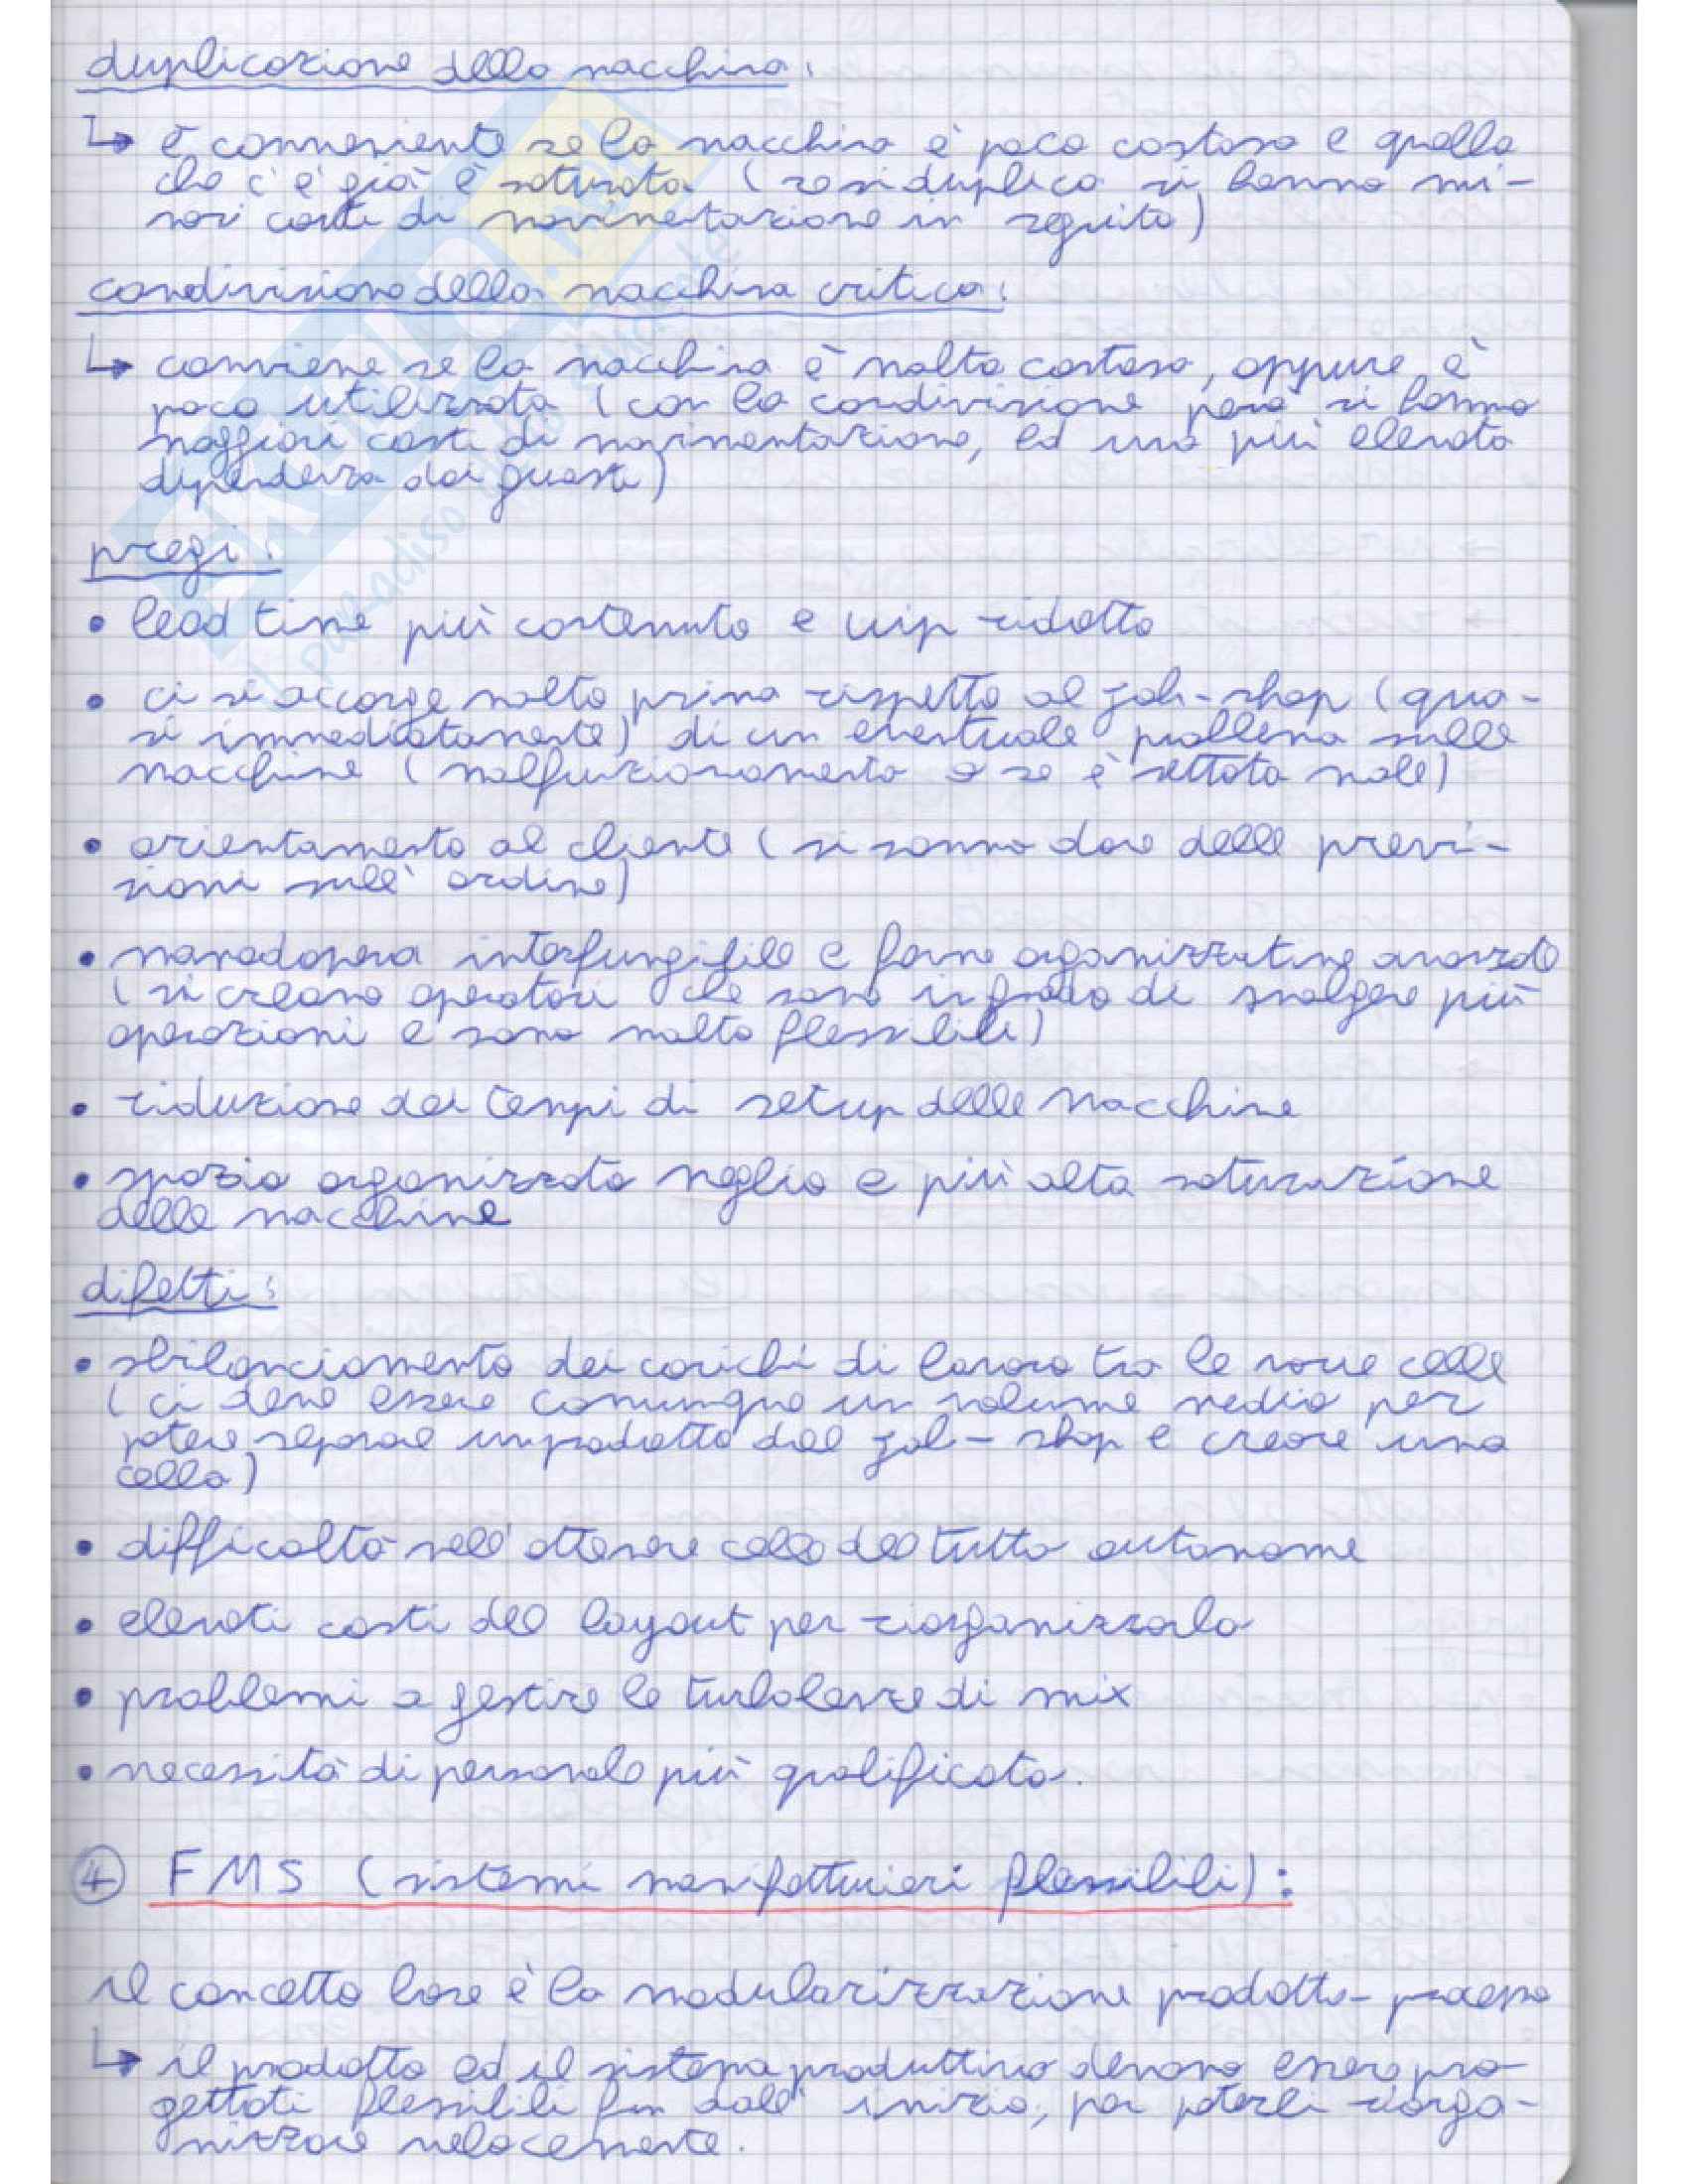 duplicazione della macchina:
↳ è conveniente se la macchina è poco costosa e quella
che c'è già è saturata (se si duplica si hanno mi-
nori costi di movimentazione in seguito)
condivisione della macchina critica:
↳ conviene se la macchina è molto costosa, oppure è
poco utilizzata (con la condivisione però si hanno
maggiori costi di movimentazione, ed una più elevata
dipendenza dai guasti)
pregi:
• lead time più contenuto e wip ridotto
• ci si accorge molto prima rispetto al job-shop (qua-
si immediatamente) di un eventuale problema sulle
macchine (malfunzionamento o se è settata male)
• orientamento al cliente (si sanno dare delle previ-
sioni sull'ordine)
• manodopera interfungibile e forme organizzative avanzate
(si creano operatori che sono in grado di svolgere più
operazioni e sono molto flessibili)
• riduzione dei tempi di setup delle macchine
• spazio organizzato meglio e più alta saturazione
delle macchine
difetti:
• sbilanciamento dei carichi di lavoro tra le varie celle
(ci deve essere comunque un volume medio per
potere separare un prodotto dal job-shop e creare una
cella)
• difficoltà nell'ottenere celle del tutto autonome
• elevati costi del layout per riorganizzarlo
• problemi a gestire le turbolenze di mix
• necessità di personale più qualificato.
④ FMS (sistemi manifatturieri flessibili):
il concetto base è la modularizzazione prodotto-processo
↳ il prodotto ed il sistema produttivo devono essere pro-
gettati flessibili fin dall'inizio, per poterli riorga-
nizzare velocemente.